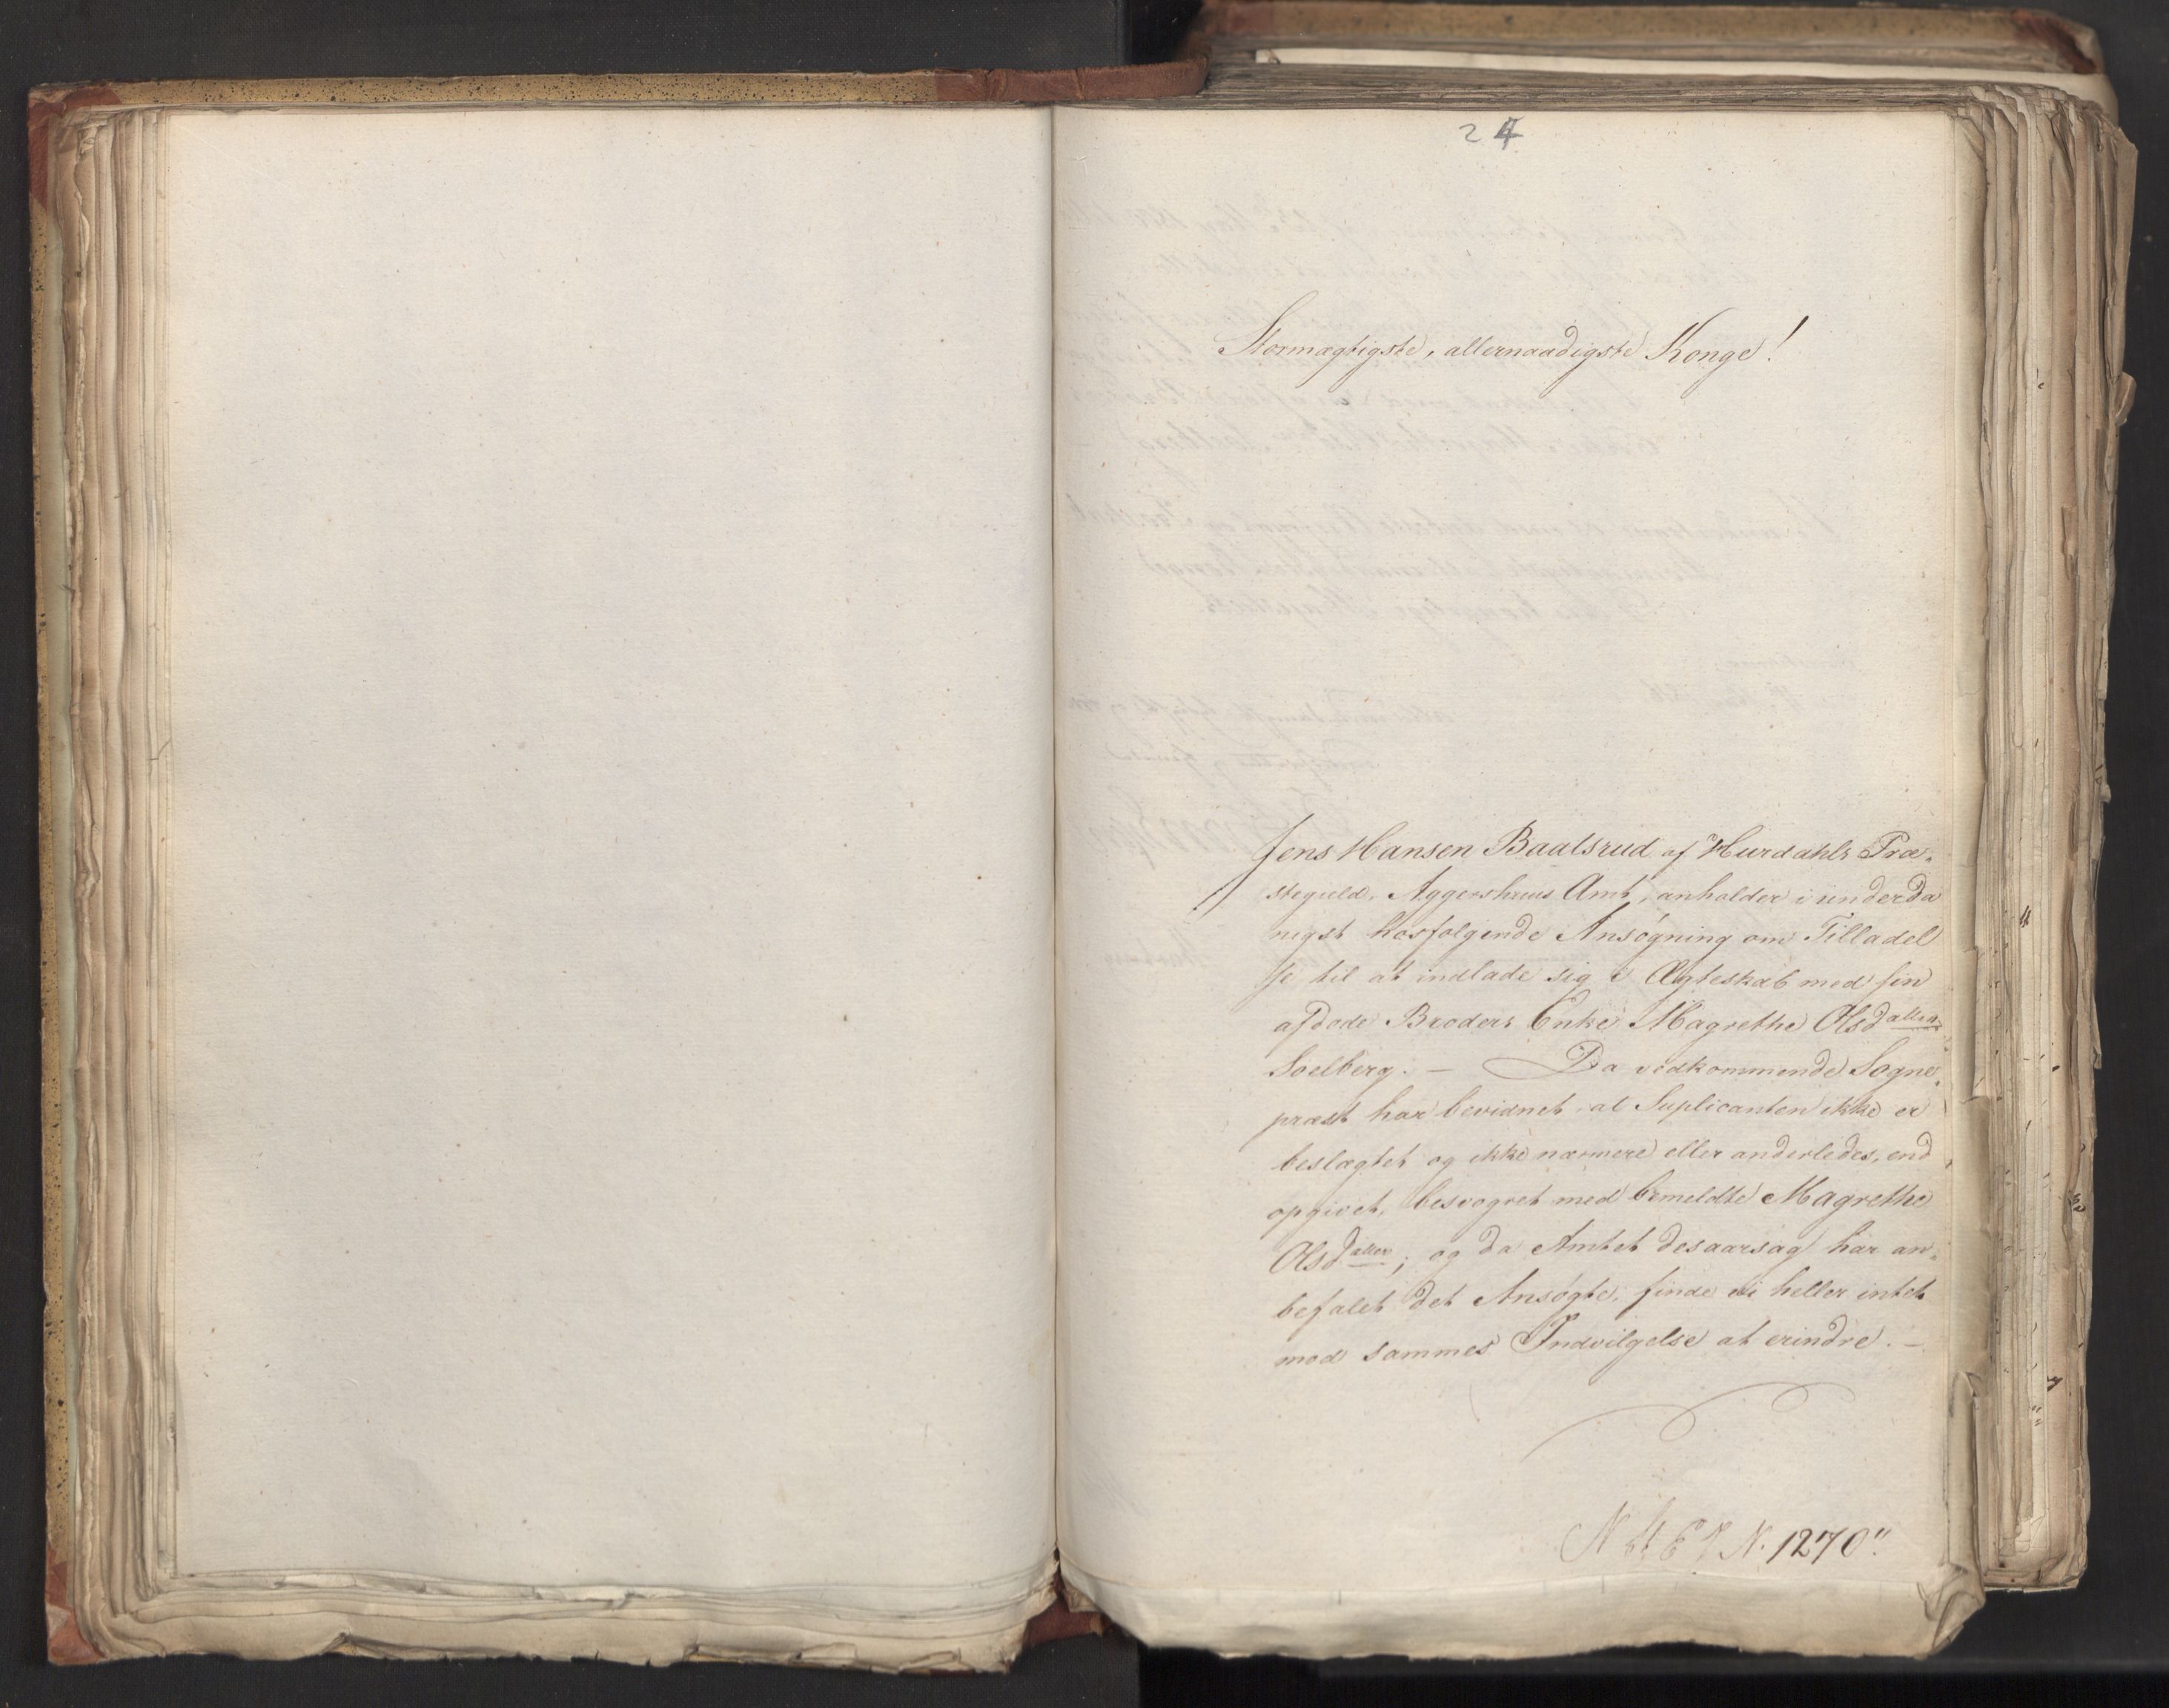 24
Stormægtigste, allernaadigste Konge!
Jens Hansen Baalsrud af Hurdahls Præ-
stegield, Aggershuus Amt, anholder i underda
nigst hosfølgende Ansøgning om Tilladel
se til at indlade sig i Ægteskab med sin
afdøde Broders Enke Magrethe Olsdatter
Soelberg. — Da vedkommende Sogne-
præst har bevidnet at Suplicanten ikke er
beslægtet og ikke nærmere eller anderledes, end
opgivet, besvogret med bemeldte Magrethe
Olsdatter; og da Amtet desaarsag har an-
befalet det Ansøgte, finde vi heller intet
mod sammes Indvilgelse at erindre. —
N. 1270"